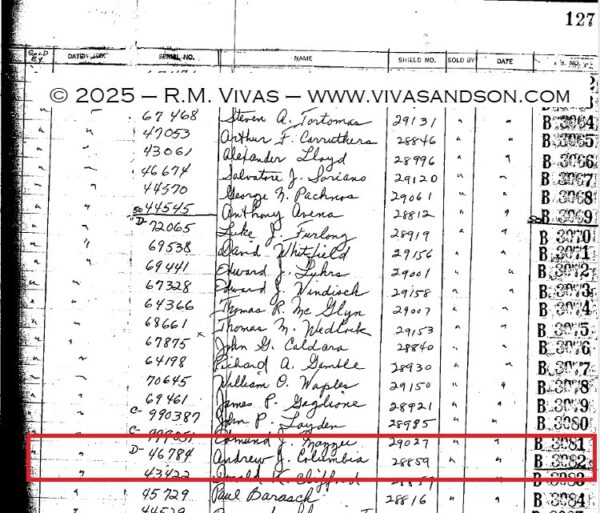 127
SOLD BY DATE SERIAL NO. NAME SHIELD NO. SOLD BY DATE NO.
© 2025 – R.M. VIVAS – WWW.VIVASANDSON.COM
67468 Steven A. Tortomas 29131 " " B 3064
47053 Arthur F. Carruthers 28846 " " B 3065
43061 Alexander Lloyd 28996 " " B 3066
46674 Salvatore J. Soriano 29120 " " B 3067
44570 George N. Pachnos 29061 " " B 3068
44545 Anthony Arena 28812 " " B 3069
D- 72065 Luke P. Furlong 28919 " " B 3070
69538 David Whitfield 29156 " " B 3071
69441 Edward J. Luhrs 29001 " " B 3072
67328 Edward J. Windisch 29158 " " B 3073
64366 Thomas R. Mc Glyn 29007 " " B 3074
68661 Thomas N. Wedlock 29153 " " B 3075
67875 x John G. Caldara 28840 " " B 3076
64198 Richard A. Gemble 28930 " " B 3077
70645 William O. Waples 29150 " " B 3078
69461 James P. Gaglione 28921 " " B 3079
C- 990387 John P. Layden 28985 " " B 3080
C- Edmund J. 29027 " " B 3081
D- 46784 Andrew J. Columbia 28859 " " B 3082
43422 Donald K. Clifford B 3083
45729 Paul Barasch 28816 " " B 3084